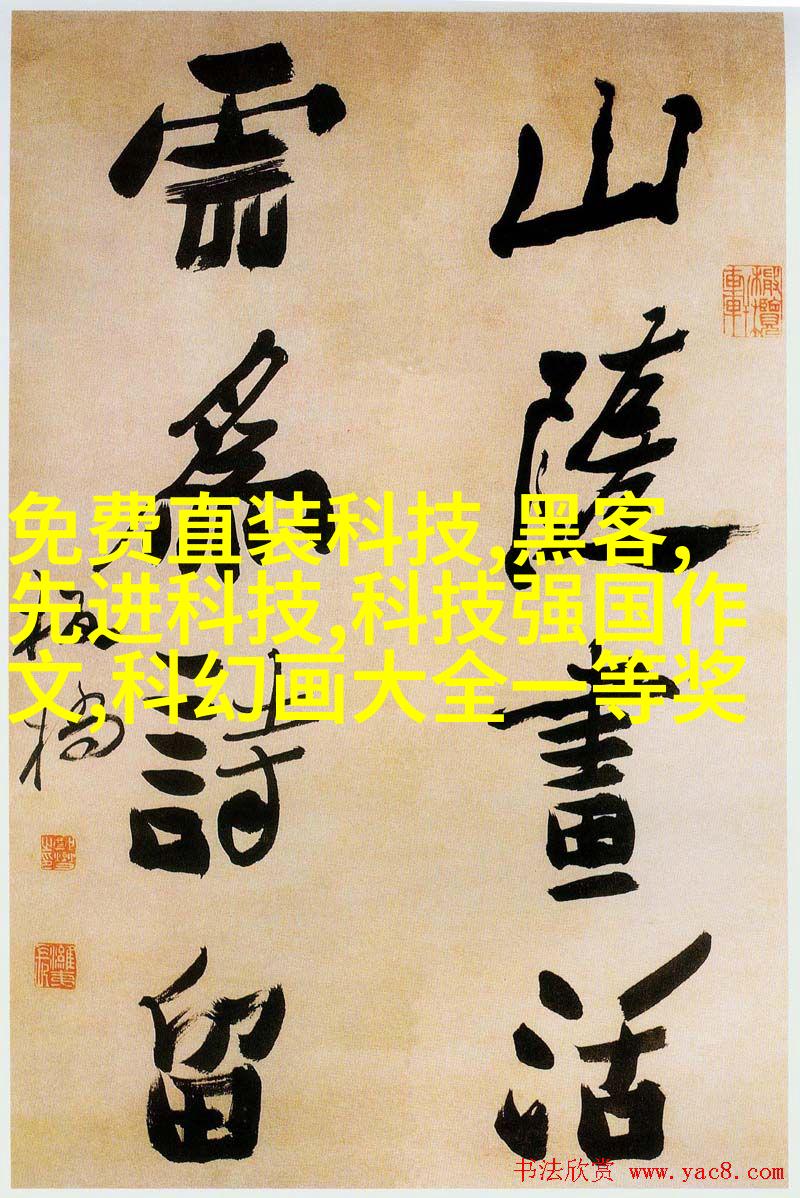 山隨畫活
雲爲詩留
板橋
免费直装科技,黑客,
先进科技,科技强国作
文,科幻画大全一等奖
书法欣赏 www.yac8.com